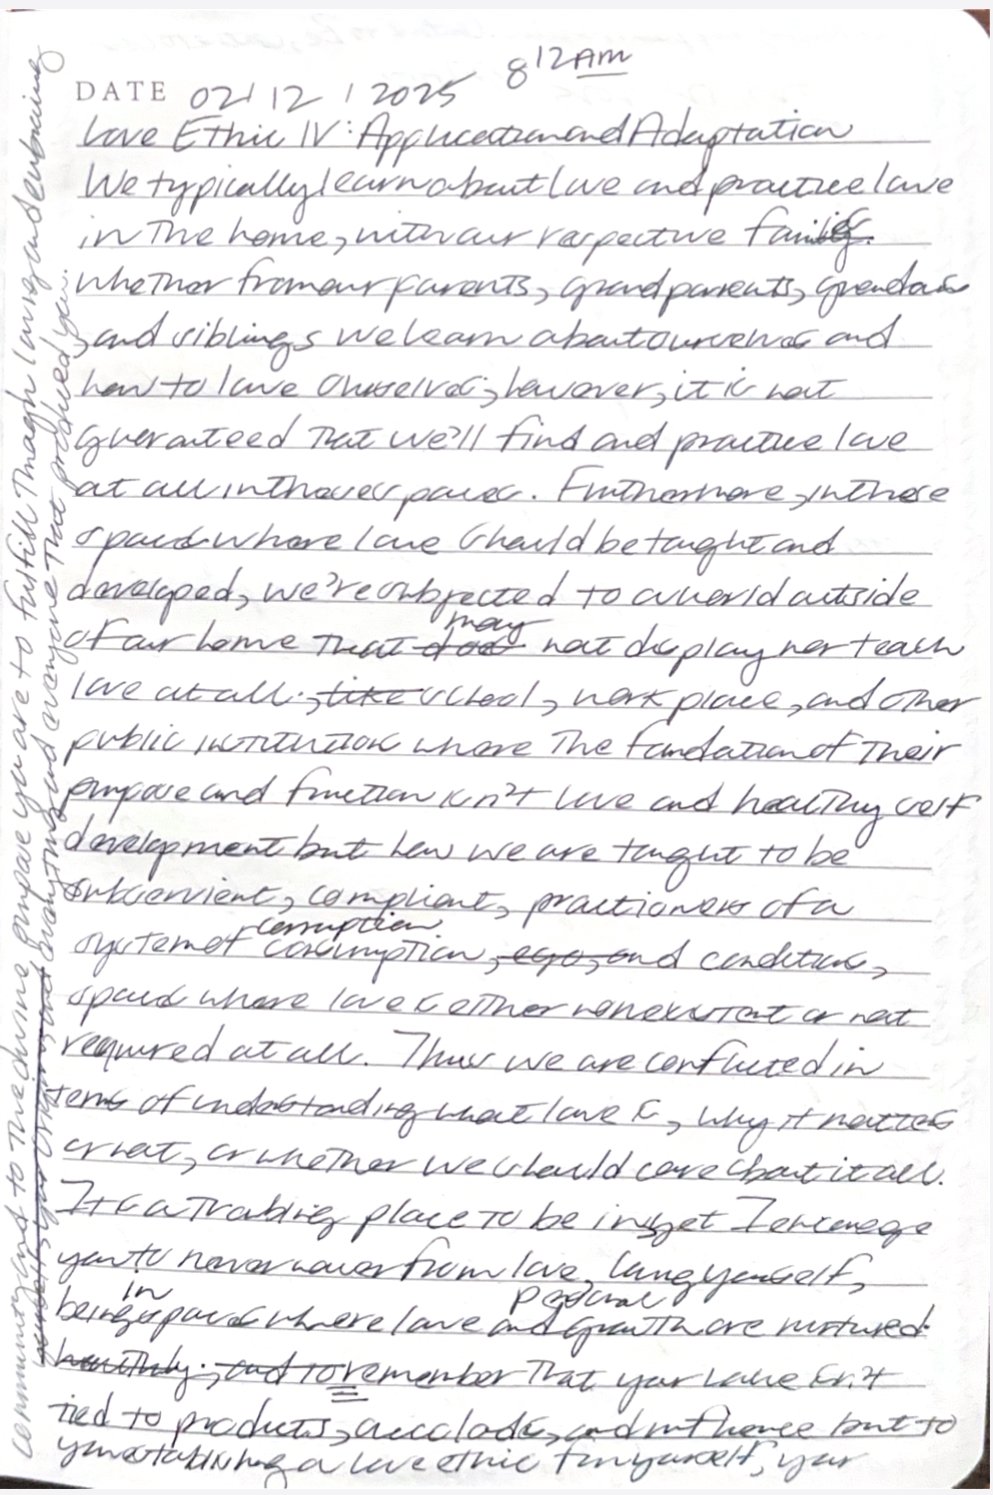 8 12 AM
DATE 02/12/2025
Love Ethic IV: Application and Adaptation
We typically learn about love and practice love
in the home, with our respective families.
Whether from our parents, grandparents, guardians
, and siblings we learn about ourselves and
how to love ourselves; however, it is not
guaranteed that we'll find and practice love
at all in those spaces. Furthermore, in these
spaces where love should be taught and
developed, we're subjected to a world outside
may
of our home that does not display nor teach
love at all; like school, work place, and other
public institutions where the foundation of their
purpose and function isn't love and healthy self
development but how we are taught to be
subservient, compliant, practioners of a
corruption
system of consumption, ego, and conditions,
spaces where love is either nonexistent or not
required at all. Thus we are conflicted in
terms of understanding what love is, why it matters
or not, or whether we should care about it all.
It is a troubling place to be in yet I encourage
you to never waver from love, loving yourself,
in personal
being spaces where love and growth are nurtured.
healthily; and to remember that your value isn't
tied to products, accolades, and influence but to
your establishing a love ethic for yourself, your
community and to the divine purpose you are to fulfill through loving and embracing
anything and everyone that produced you.